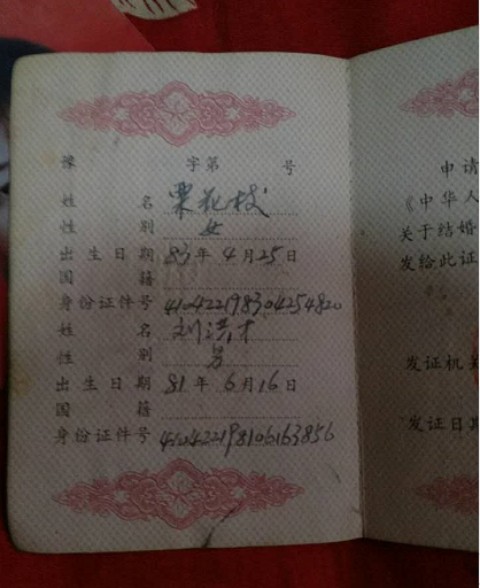 豫 字第 号
姓名 栗花枝
性别 女
出生日期 83年4月25日
国籍
身份证件号 410422198304254820
姓名 刘洪才
性别 男
出生日期 81年6月16日
国籍
身份证件号 410422198106163856
申请
《中华人
关于结婚
发给此证
发证机关
发证日期